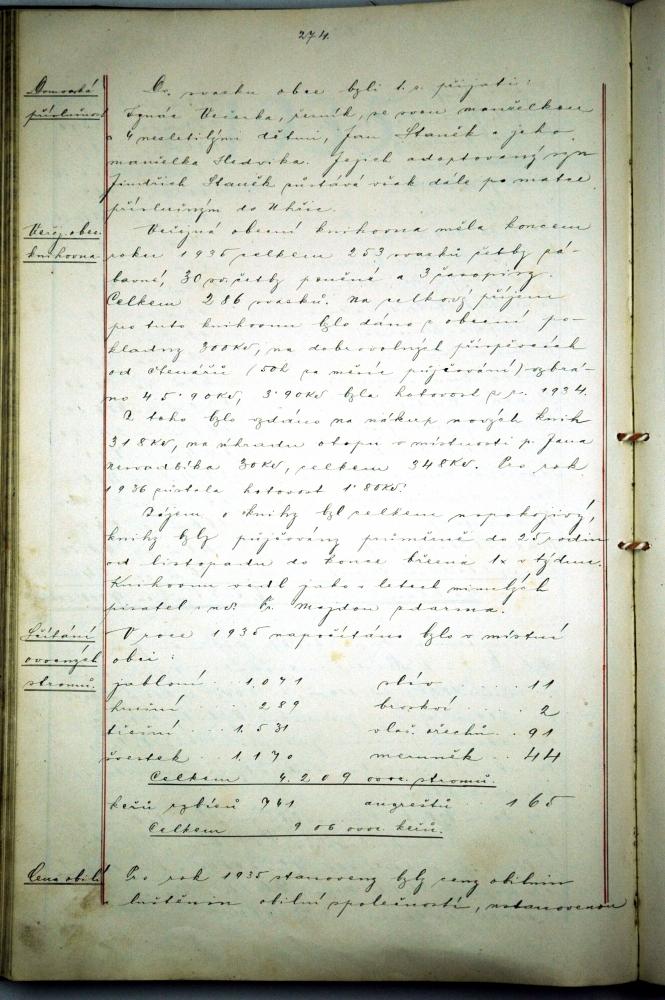 274.
Domovská
příslušnost
Do svazku obce byli t. r. přijati:
Ignác Večerka, řezník, se svou manželkou
a 4 nezletilými dětmi, Jan Staněk a jeho
manželka Hedvika. Jejich adoptovaný syn
Jindřich Staněk zůstává však dále po matce
příslušným do Uhřic.
Veřej. obec.
knihovna.
Veřejná obecní knihovna měla koncem
roku 1935 celkem 253 svazků četby zá-
bavné, 30 sv. četby poučné a 3 časopisy.
Celkem 286 svazků. Na celkový příjem
pro tuto knihovnu bylo dáno z obecní po-
kladny 300 Kč, na dobrovolných příspěvcích
od čtenářů (50h za měsíc půjčování) vybrá-
no 45·90 Kč, 3·90 Kč byla hotovost z r. 1934.
Z toho bylo vydáno na nákup nových knih
318 Kč, na úhradu otopu v místnosti p. Jana
30 Kč, celkem 348 Kč. Pro rok
1936 zůstala hotovost 1·80 Kč.
Zájem o knihy byl celkem uspokojivý,
knihy byly půjčovány průměrně do 25 rodin
od listopadu do konce března 1x v týdnu.
Knihovnu vedl jako v letech minulých
pisatel Fr. Majdon zdarma.
Sčítání
ovocných
stromů.
V roce 1935 napočítáno bylo v místní
obci:
jabloní . . 1.071 sliv . . . . 11
hrušní . . 289 broskví . . . 2
třešní . . 1.531 vlaš. ořechů . . 91
švestek . . 1.170 meruněk . . 44
Celkem 4.209 ovoc. stromů.
keřů rybízu 741 angreštů . . 165
Celkem 906 ovoc. keřů.
Cena obilí
Pro rok 1935 stanoveny byly ceny obilnin
luštěnin obilní společností, ustanovenou